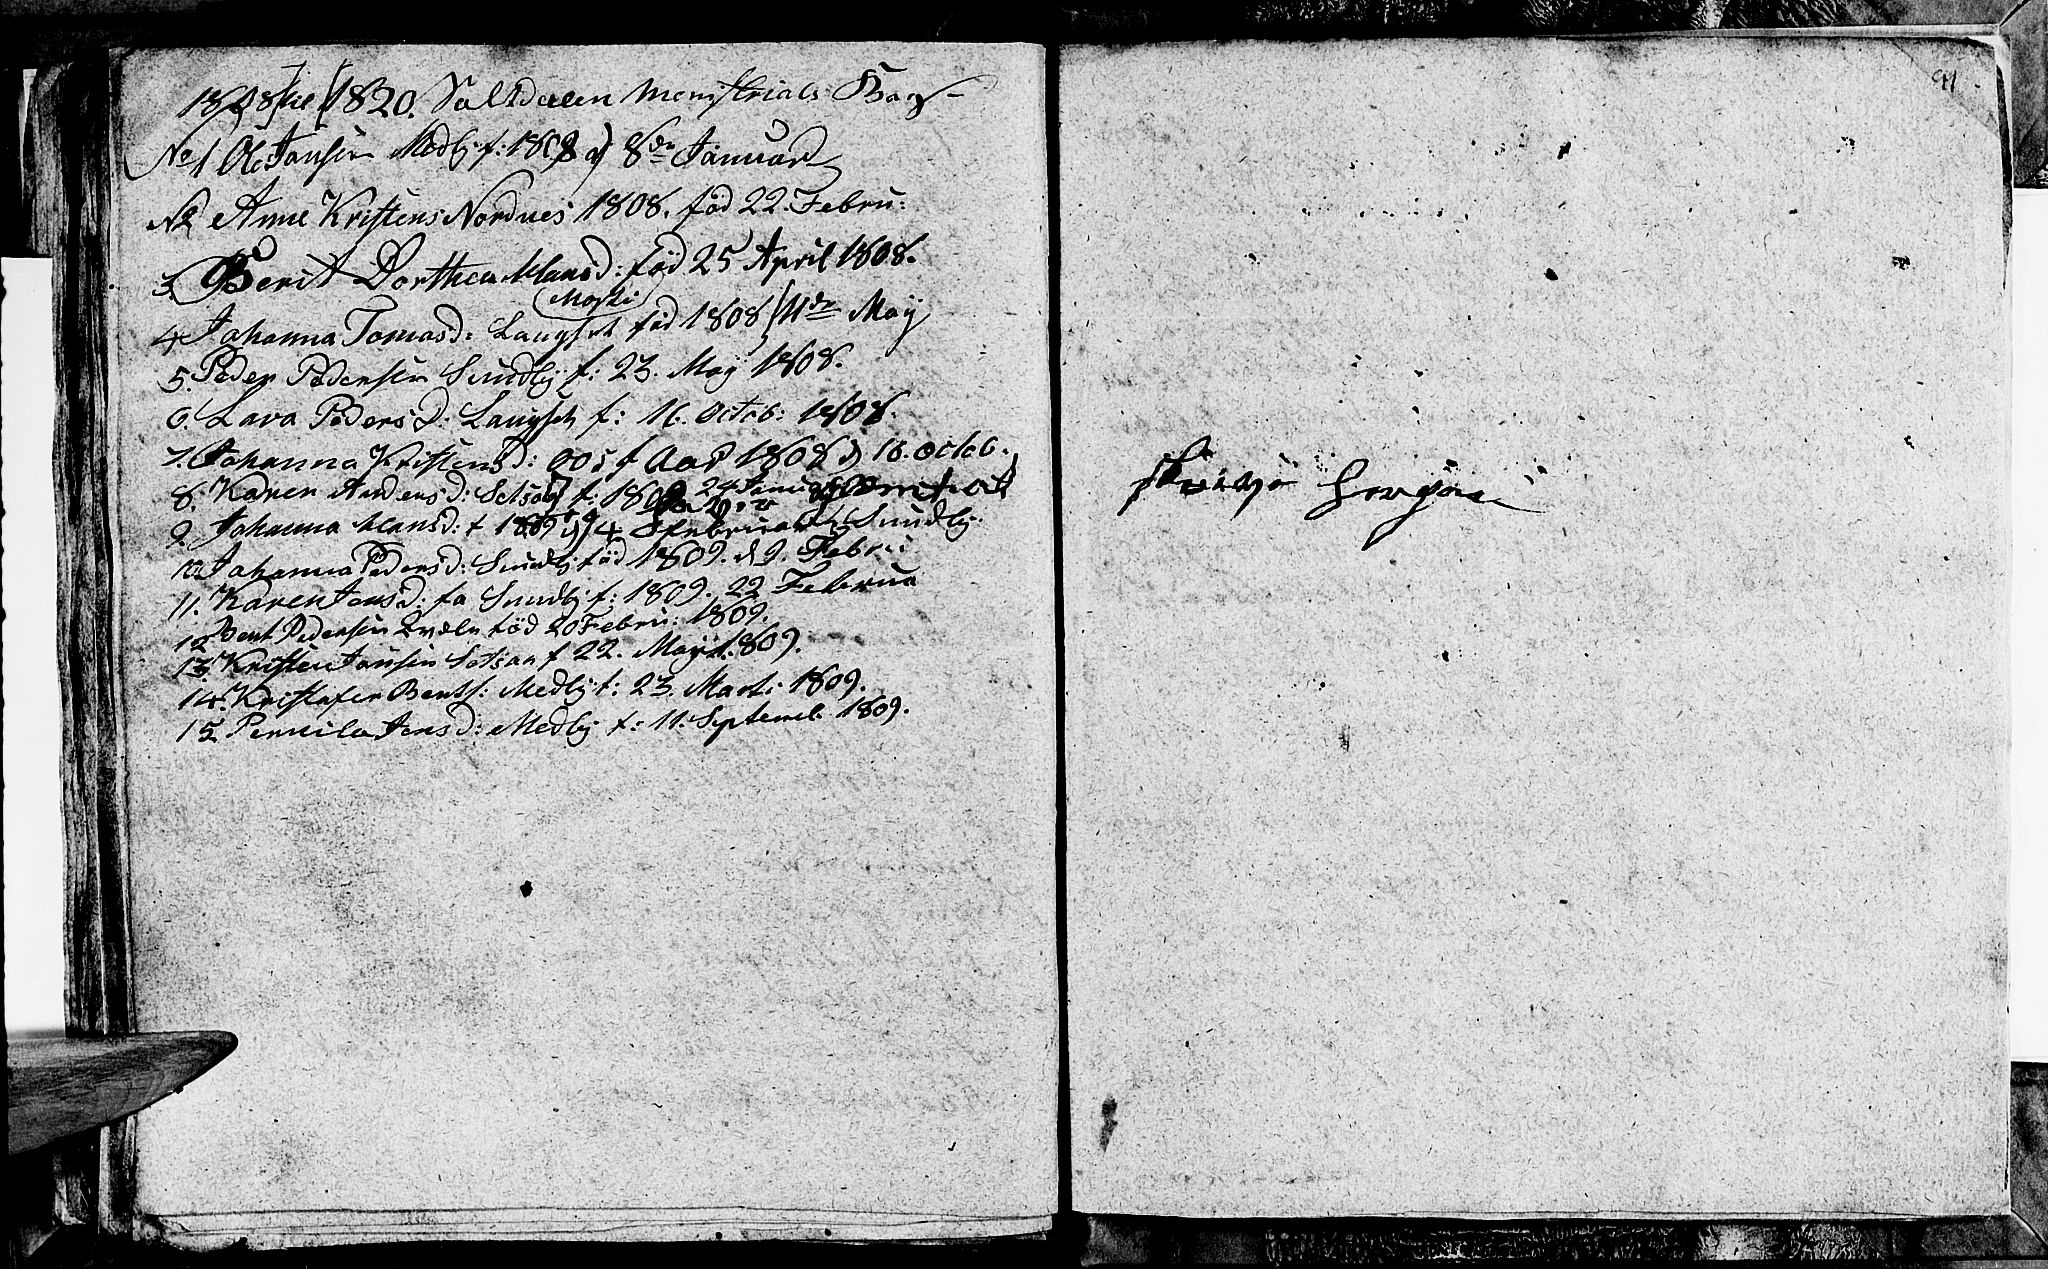 1808 til 1820. Saltdalen Menistrials Bog
No 1 Ole Jansen Medby f: 1808 d 8de Januar
N2 Anne Kristens Nordnes 1808. fød 22. Febru:
3. Berit Dorthea Mansd: fød 25 April 1808.
4 Johanna Tomasd: Langset fød 1808 11de May
5. Peder Pedersen Sundby f: 23. May 1808.
6. Lava Pedersd: Langset f: 16. Octob: 1808.
7. Johanna Kristensd: f Aar 1808 d 18. octob.
8. Karen Andersd: Setsaa f: 1809 24 Januar
9. Johanna Mansd: f 1809 d 4 Februar Sundby.
10. Johanna Pedersd: Sundby fød 1809. d 9. Febru
11. Karen Jensd: fa Sundby f: 1809. 22 Februa
12 Bent Pedersen fød 20 Febru: 1809.
13. Kristen Jansen Setsaa f 22. May 1809.
14. Kristofer Bents: Medby f: 23. Marti 1809.
15 Pernila Jensd: Medby f: 11. Septemb. 1809.